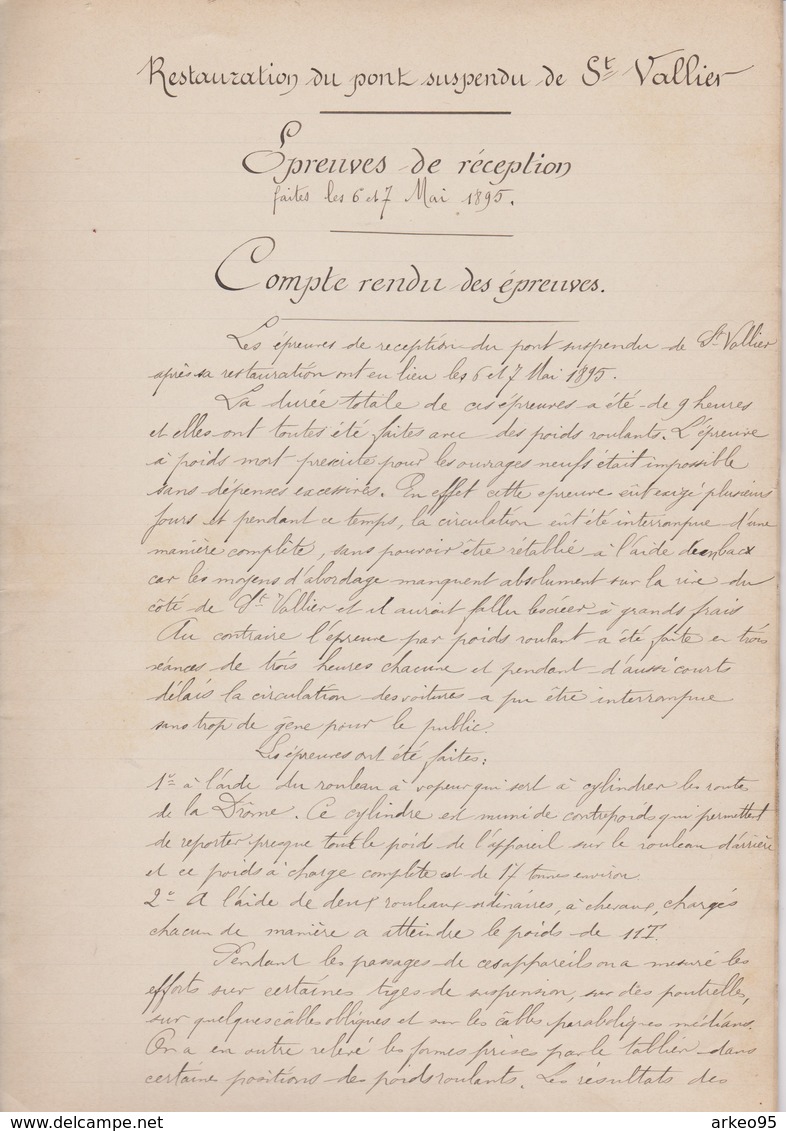 Restauration du pont suspendu de St Vallier
Epreuves de réception
faites les 6 et 7 Mai 1895.
Compte rendu des épreuves.
Les épreuves de reception du pont suspendu de St Vallier
après sa restauration ont eu lieu les 6 et 7 Mai 1895.
La durée totale de ces épreuves a été de 9 heures
et elles ont toutes été faites avec des poids roulants. L'épreuve
à poids mort prescrite pour les ouvrages neufs était impossible
sans dépenses excessives. En effet cette epreuve eût exigé plusieurs
jours et pendant ce temps, la circulation eût été interrompue d'une
manière complète, sans pouvoir être rétablie à l'aide de bacs
car les moyens d'abordage manquent absolument sur la rive du
côté de St Vallier et il auroit fallu les créer à grands frais
Au contraire l'épreuve par poids roulant a été faite en trois
séances de trois heures chacune et pendant d'aussi courts
délais la circulation des voitures a pu être interrompue
sans trop de gêne pour le public.
Les épreuves ont été faites:
1º à l'aide du rouleau à vapeur qui sert à cylindrer les route
de la Drôme. Ce cylindre est muni de contrepoids qui permettent
de reporter presque tout le poid de l'appareil sur le rouleau d'arrière
et ce poids à charge complète est de 17 tonnes environ
2º A l'aide de deux rouleaux ordinaires, à chevaux, chargés
chacun de manière a atteindre le poids de 11T.
Pendant les passages de ces appareils on a mesuré les
efforts sur certaines tiges de suspension, sur des poutrelles,
sur quelques câbles obliques et sur les câbles paraboliques médians.
On a en outre relevé les formes prises par le tablier dans
certaine positions des poids roulants. Les résultats des
www.delcampe.net
arkeo95